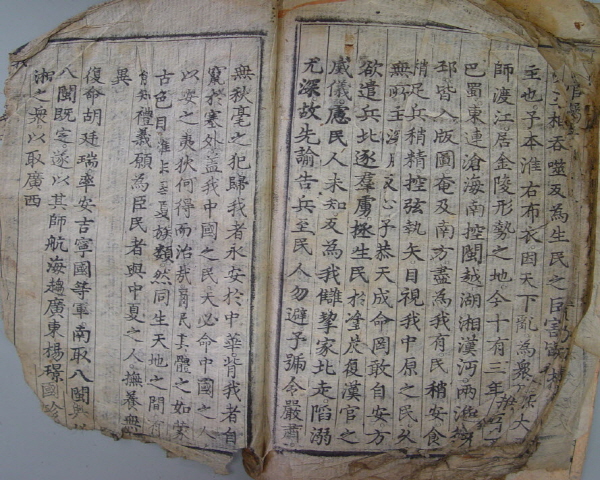 相吞噬反為生民之巨害
主也予本淮右布衣因天下亂為衆 大
師渡江居金陵形勢之地今十有三年
巴蜀東連滄海南控閩越湖湘漢沔兩淮徐
邳皆入版圖奄及南方盡為我有民稍安食
稍足兵稍精控弦執矢目視我中原之民久
無所主 予恭天成命罔敢自安方
欲遣兵北逐羣虜拯生民於塗炭復漢官之
威儀慮民人未知反為我讎挈家北走陷溺
尤深故先諭告兵至民人勿避予號令嚴肅
無秋毫之犯歸我者永安於中華背我者自
竄於塞外蓋我中國之民天必命中國之人
以安之夷狄何得而治哉 民 體之如蒙
古色目 夏族類然同生天地之間有
知禮義願為臣民者與中夏之人撫養無
異
復命胡廷瑞率安吉寧國等軍南取八閩
八閩既定遂以其師航海趨廣東楊璟
湘之兵以取廣西